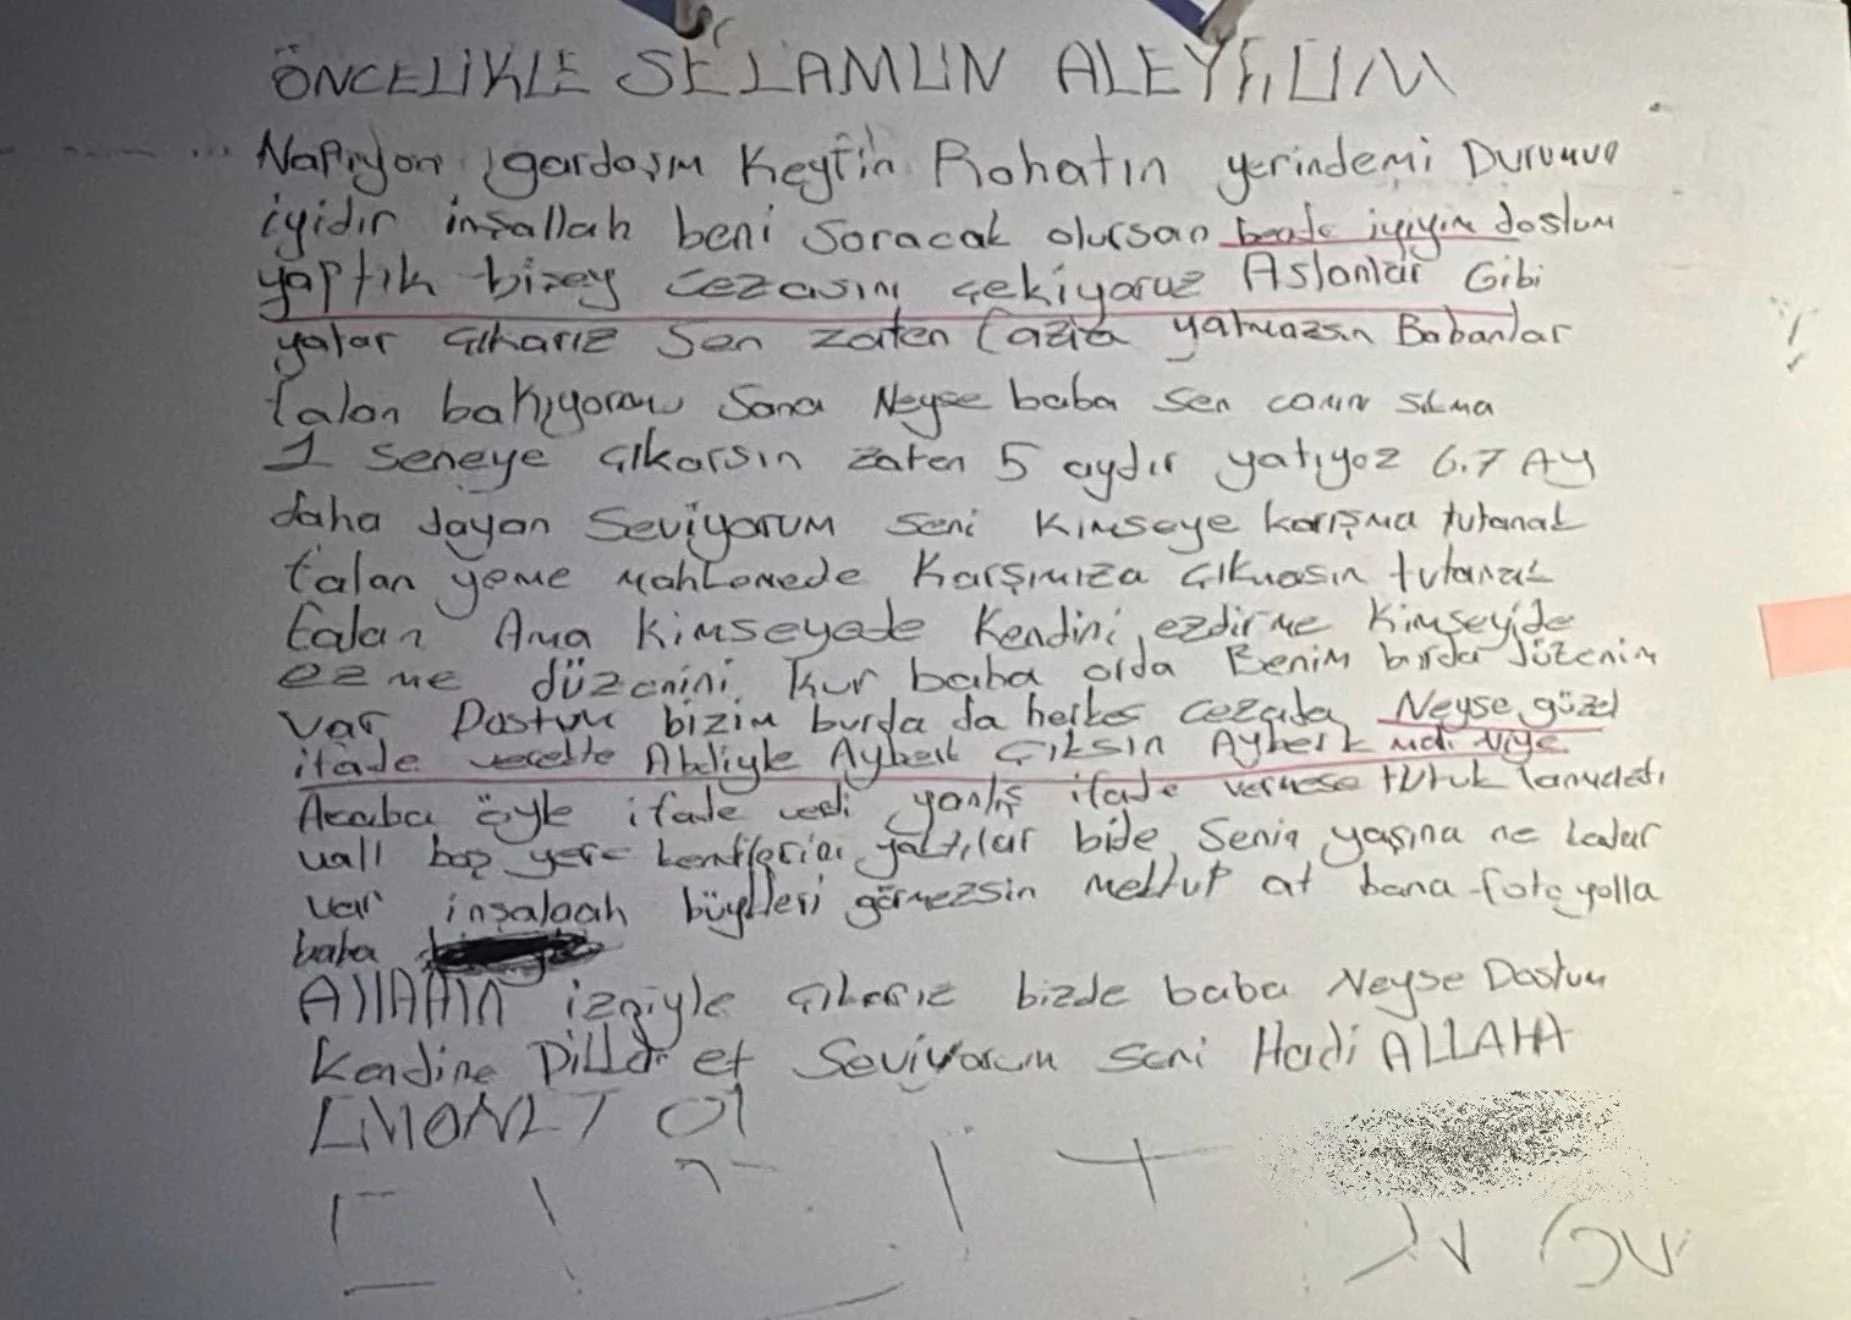 ÖNCELİKLE SELAMUN ALEYKÜM
Napıyon gardaşım Keyfin Rohatın yerindemi Durumun
iyidir inşallah beni Soracak olursan bende iyiyim dostum
yaptık bişey cezasını çekiyoruz Aslanlar Gibi
yatar çıkarız Sen zaten fazla yatmazsın Babanlar
falan bakıyorlar Sana Neyse baba Sen canın Sıkma
1 seneye çıkarsın zaten 5 aydır yatıyoz 6.7 AY
daha dayan Seviyorum Seni Kimseye karışma tutanak
falan yeme mahkemede Karşımıza çıkmasın tutanak
falan Ama Kimseyede Kendini ezdirme Kimseyide
ezme düzenini Kur baba orda Benim burda düzenim
var Dostum bizim burda da herkes cezada Neyse güzel
ifade verekte Abdiyle Ayberk Çıksın Ayberk niye
Acaba öyle ifade verdi yanlış ifade vermese tutuklanmadı
vall boş yere kendilerini yaktılar bide Senin yaşına ne kadar
var inşalaah büyükleri görmezsin Mektup at bana foto yolla
baba
Allahın izniyle çıkarız bizde baba Neyse Dostum
Kendine Dikkat et Seviyorum seni Hadi ALLAHA
EMANET Ol